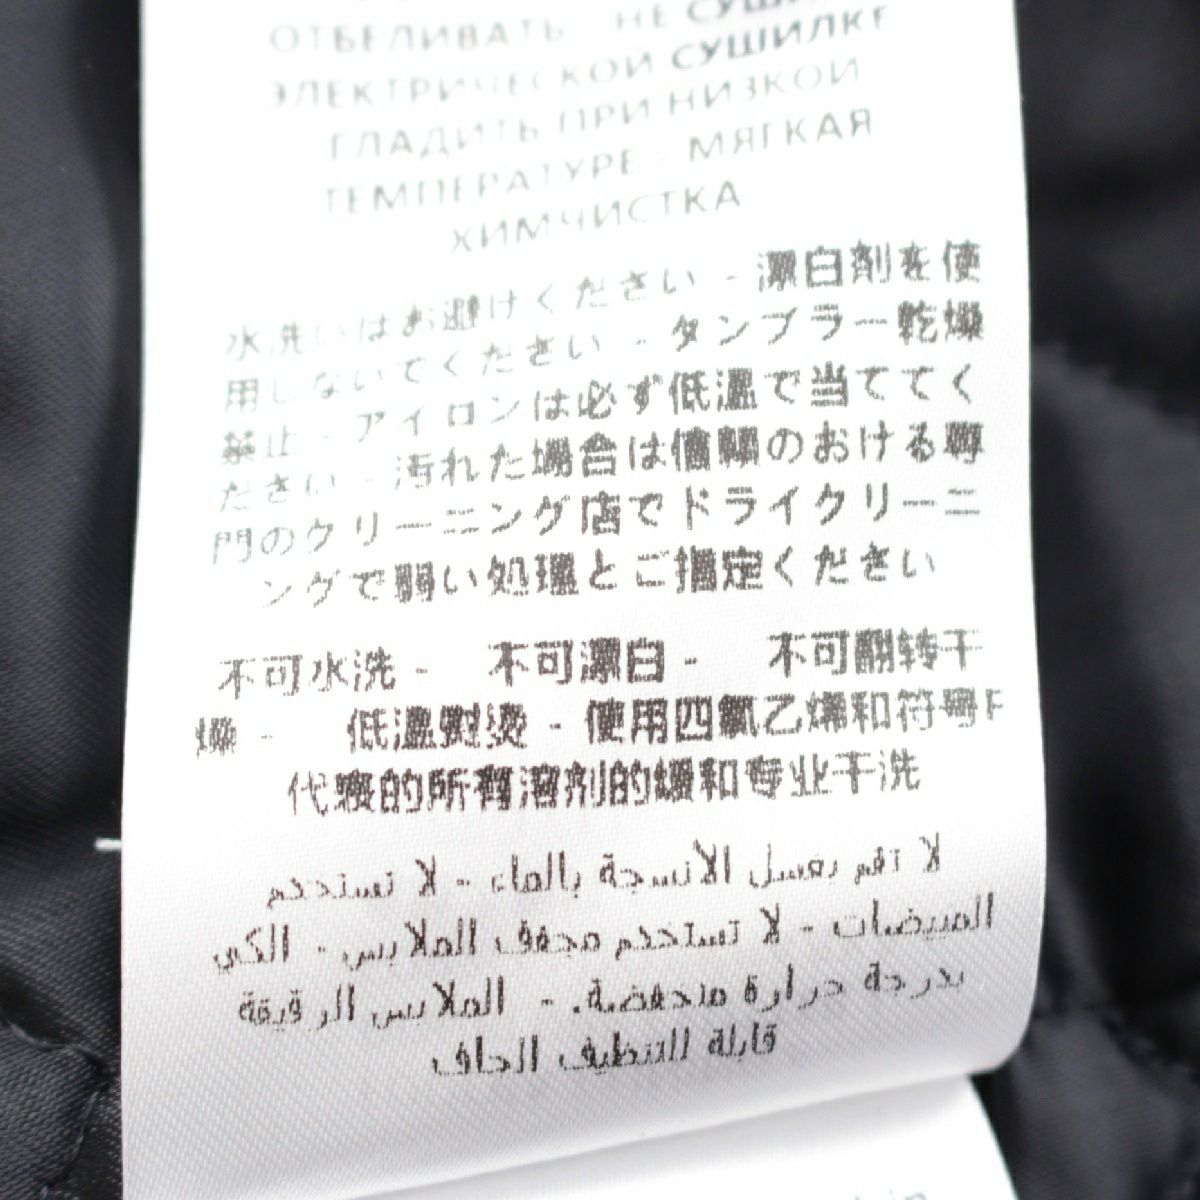 ОТБЕЛИВАТЬ НЕ СУШ
ЭЛЕКТРИЧЕСКОЙ СУШИЛКЕ
ГЛАДИТЬ ПРИ НИЗКОЙ
ТЕМПЕРАТУРЕ - МЯГКАЯ
ХИМЧИСТКА
水洗いはお避けください - 漂白剤を使
用しないでください - タンブラー乾燥
禁止 - アイロンは必ず低温で当ててく
ださい - 汚れた場合は信頼のおける専
門のクリーニング店でドライクリーニ
ングで弱い処理とご指定ください
不可水洗 - 不可漂白 - 不可翻转干
燥 - 低温熨烫 - 使用四氯乙烯和符号F
代表的所有溶剂的缓和专业干洗
لا تقم بغسل الأنسجة بالماء - لا تستخدم
المبيضات - لا تستخدم مجفف الملابس - الكي
بدرجة حرارة منخفضة. - الملابس الرقيقة
قابلة للتنظيف الجاف